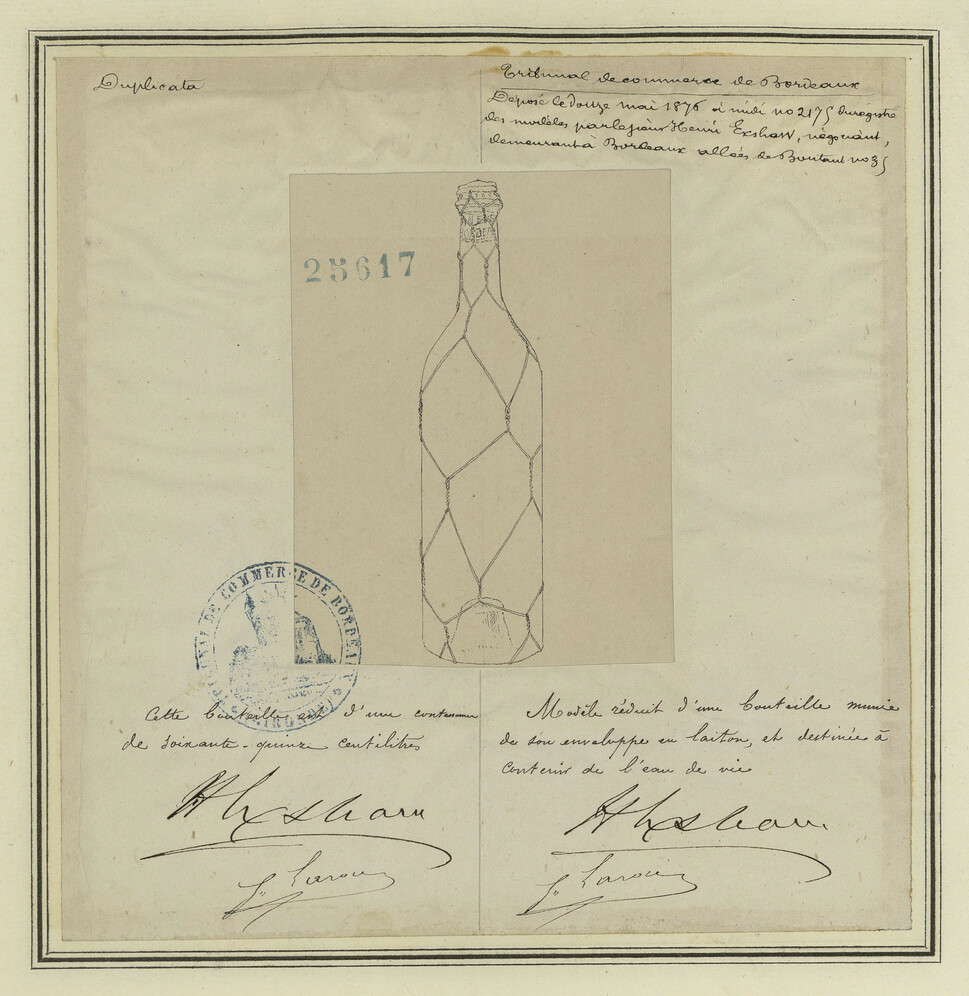 Duplicata
Tribunal de commerce de Bordeaux
Déposé le douze mai 1876 à midi no 2175 du registre
des modèles par le sieur Henri Exshaw, négociant,
demeurant à Bordeaux allées de Boutaut no 35
25617
TRIBUNAL DE COMMERCE DE BORDEAUX
(GIRONDE)
Cette bouteille est d'une contenance
de soixante-quinze centilitres
Modèle réduit d'une bouteille munie
de son enveloppe en laiton, et destinée à
contenir de l'eau de vie
H Exshaw
H Exshaw